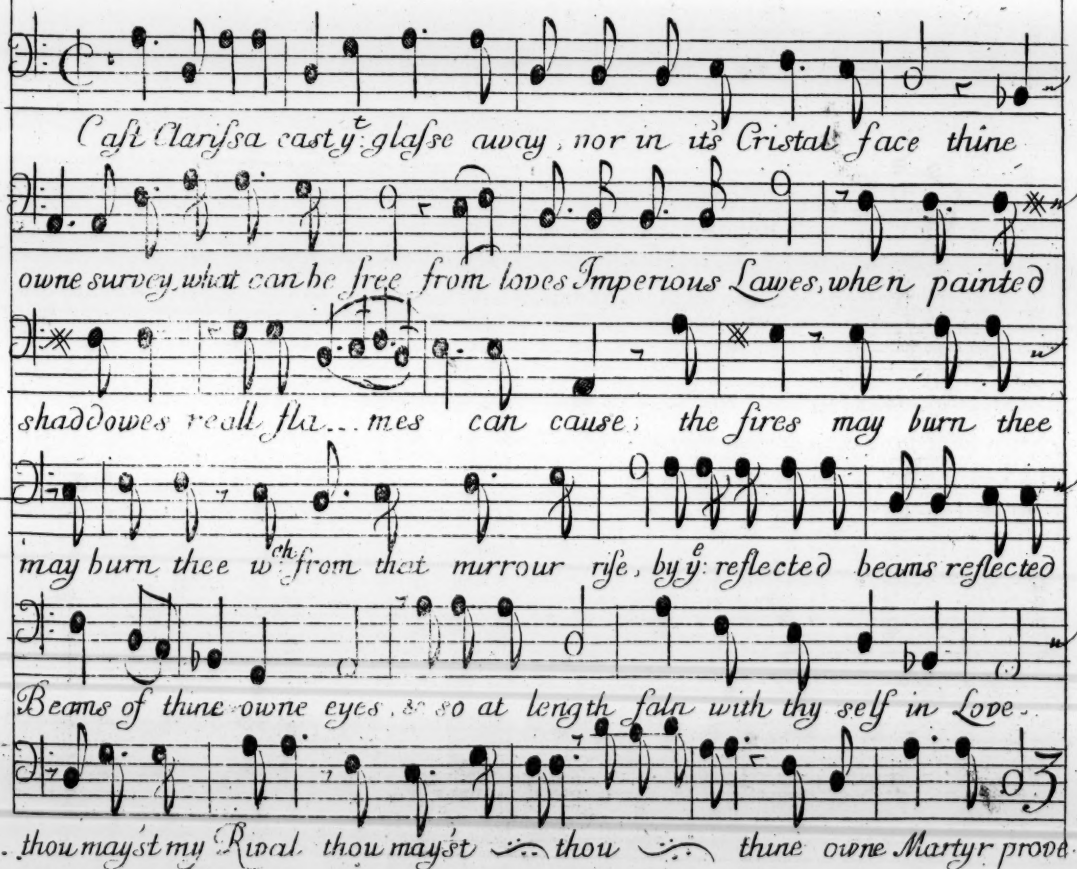 Caſt Clariſsa cast yᵗ: glaſse away, nor in it's Cristal face thine
owne survey, what can be free from loves Imperious Lawes, when painted
shaddowes reall fla...mes can cause; the fires may burn thee
may burn thee wᶜʰ: from that mirrour riſe, by yᵉ: reflected beams reflected
Beams of thine owne eyes, & so at length faln with thy self in Love.
thou may'st my Rival thou may'st thou thine owne Martyr prove.
3